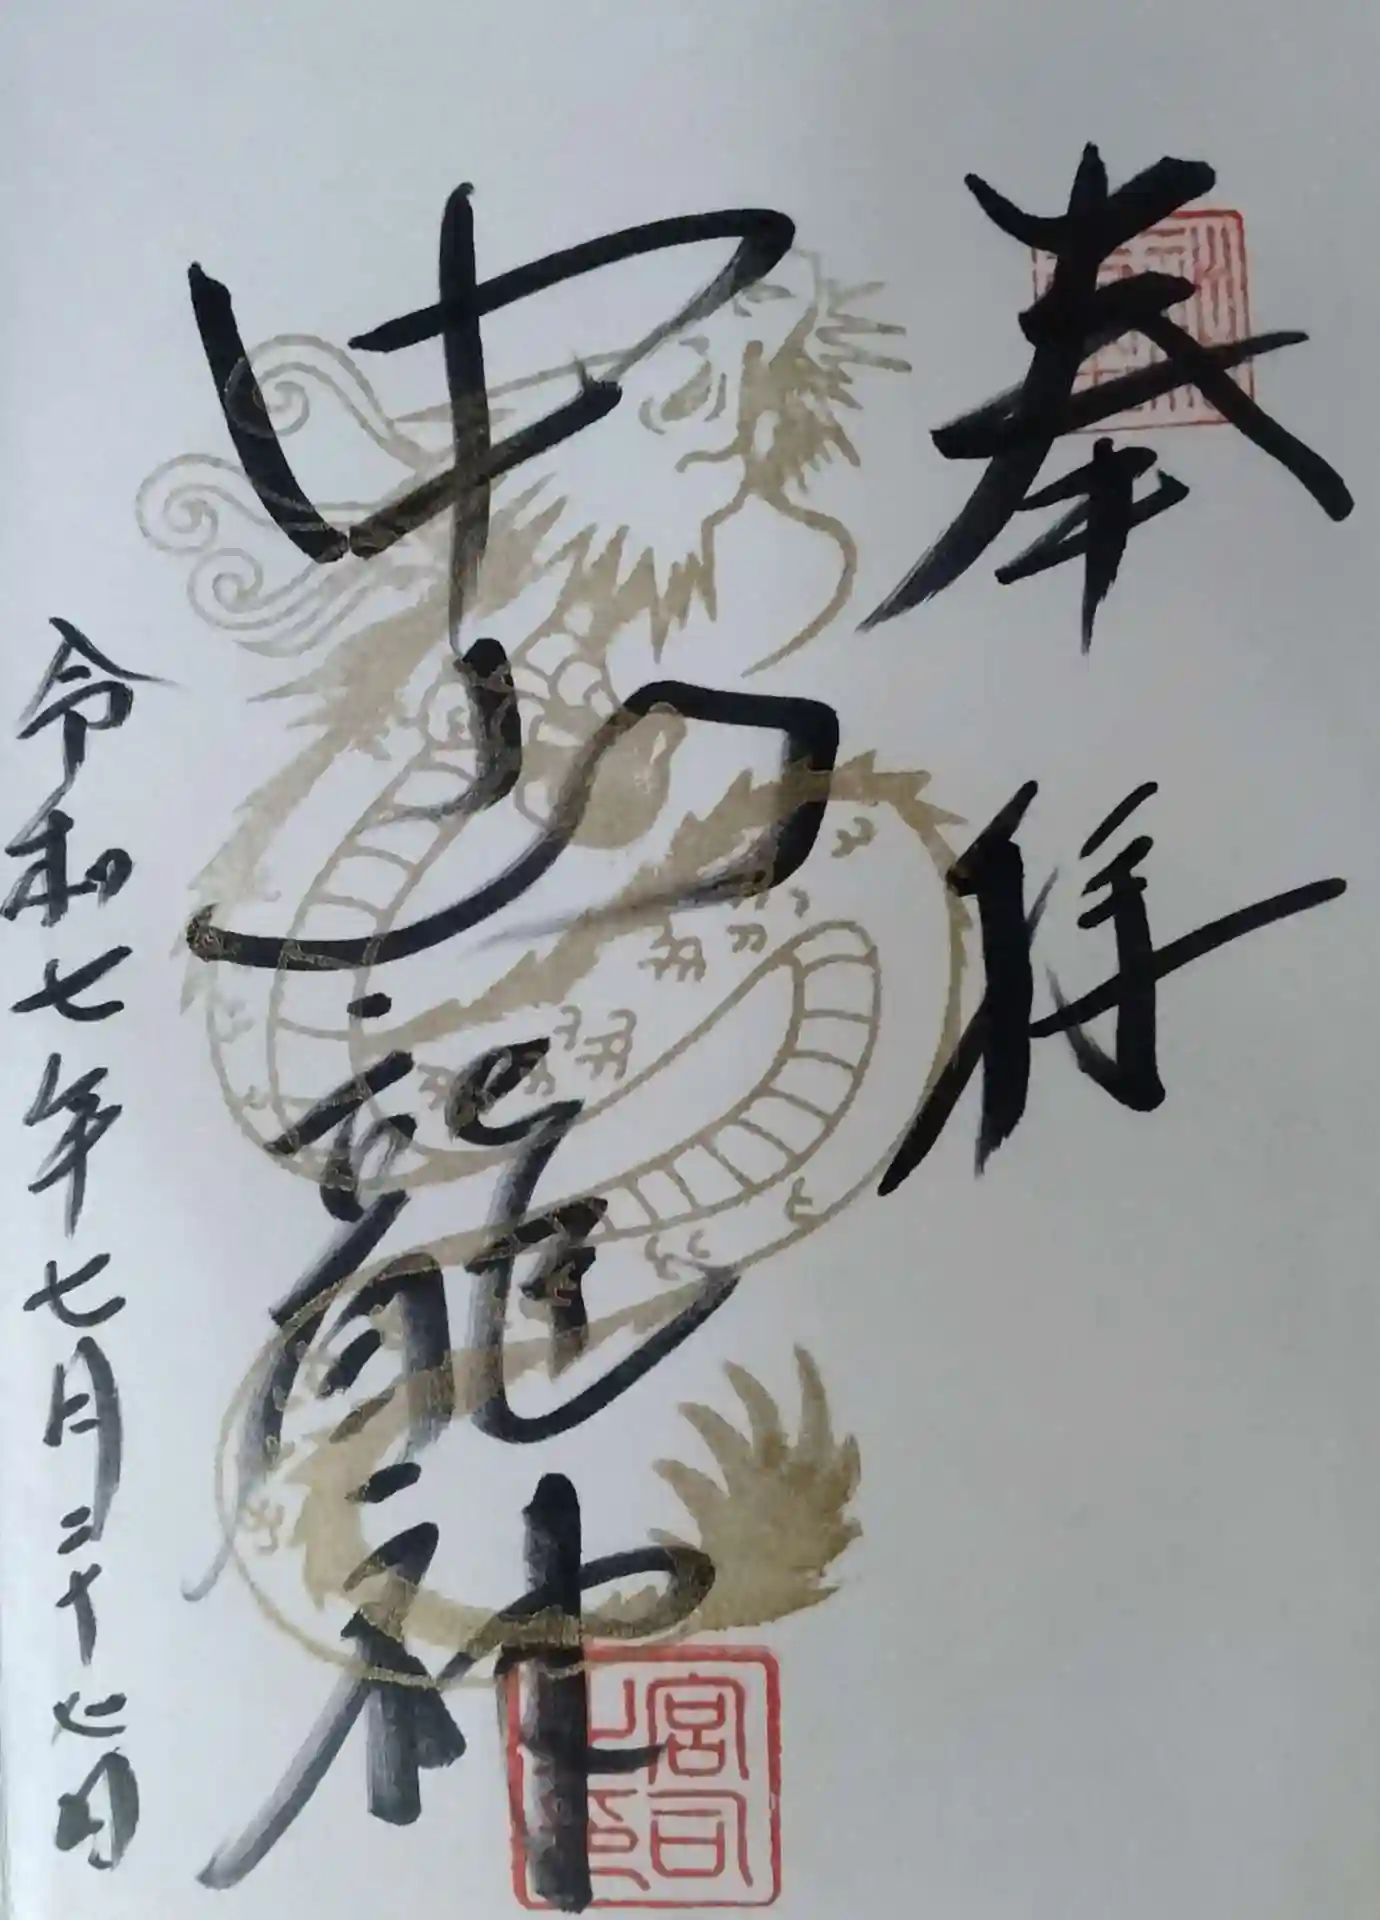 奉拝
中 龍神
令和七年七月二十七日
宮司之印